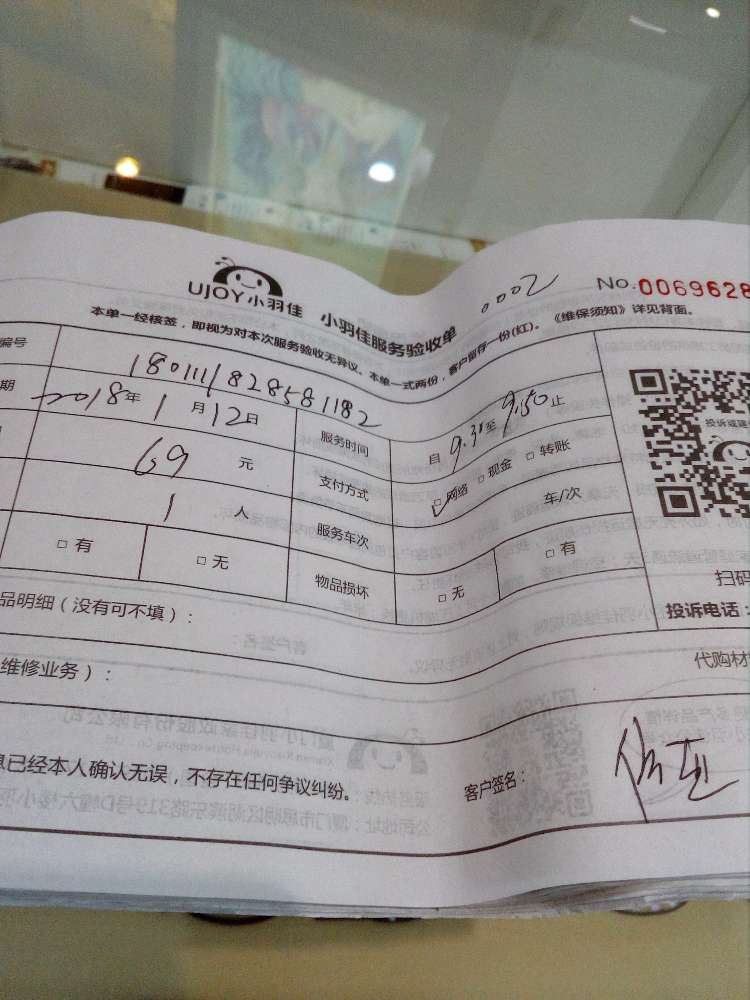 UJOY小羽佳 小羽佳服务验收单 0002 No.0069628
本单一经核签，即视为对本次服务验收无异议。本单一式两份，客户留存一份(红)。《维保须知》详见背面。
编号 1801111828581182
期 2018年1月12日 服务时间 自9.30至9.50止
69元 支付方式 □网络 □现金 □转账
1人 服务车次 车/次
□有 □无 物品损坏 □无 □有
投诉或建
扫码
投诉电话：
品明细（没有可不填）：
代购材
维修业务）：
息已经本人确认无误，不存在任何争议纠纷。 客户签名：